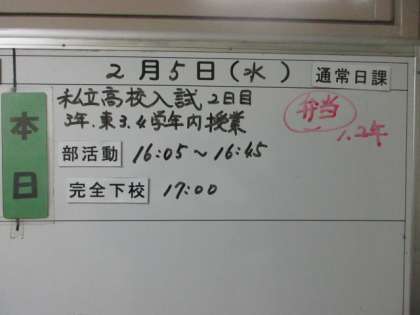 2月5日(水) 通常日課
本日
私立高校入試 2日目
3年.東3.4学年内授業
弁当
1.2年
部活動 16:05～16:45
完全下校 17:00